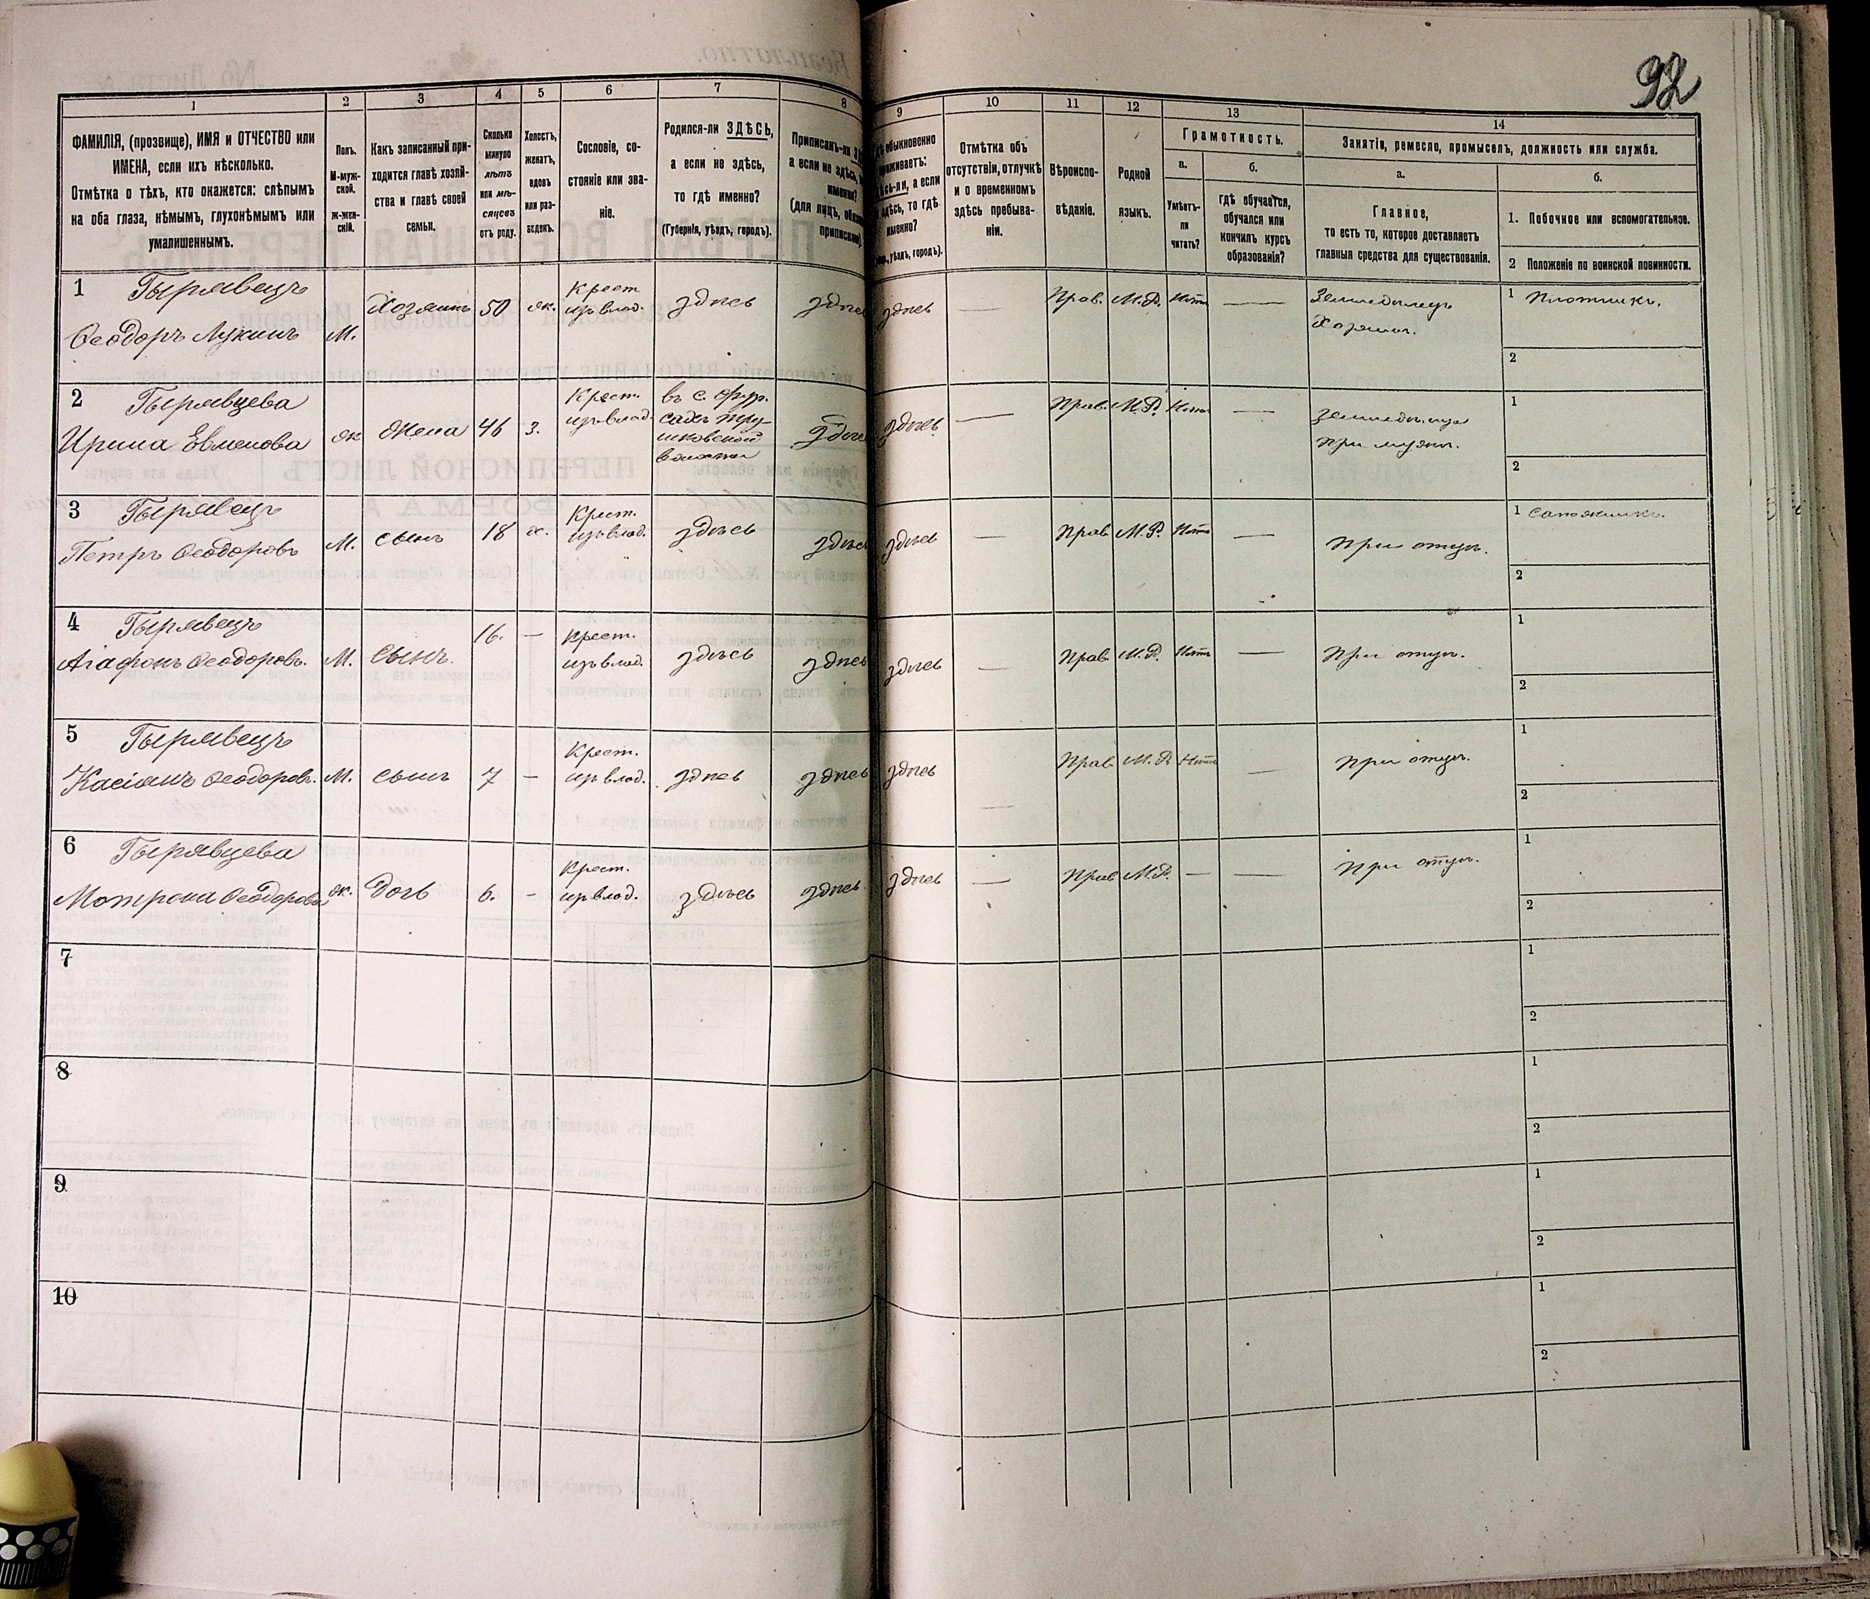 92
1 2 3 4 5 6 7 8 9 10 11 12 13 14
ФАМИЛІЯ, (прозвище), ИМЯ и ОТЧЕСТВО или
ИМЕНА, если ихъ нѣсколько.
Отмѣтка о тѣхъ, кто окажется: слѣпымъ
на оба глаза, нѣмымъ, глухонѣмымъ или
умалишеннымъ.
Полъ.
М-муж-
ской.
Ж-жен-
скій.
Какъ записанный при-
ходится главѣ хозяй-
ства и главѣ своей
семьи.
Сколько
минуло
лѣтъ
или мѣ-
сяцевъ
отъ роду.
Холостъ,
женатъ,
вдовъ
или раз-
веденъ.
Сословіе, со-
стояніе или зва-
ніе.
Родился-ли ЗДѢСЬ,
а если не здѣсь,
то гдѣ именно?
(Губернія, уѣздъ, городъ).
Приписанъ-ли
а если не здѣсь,
именно?
(для лицъ,
обыкновенно
проживаетъ:
а если
здѣсь, то гдѣ
именно?
уѣздъ, городъ).
Отмѣтка объ
отсутствіи, отлучкѣ
и о временномъ
здѣсь пребыва-
ніи.
Вѣроиспо-
вѣданіе.
Родной
языкъ.
Грамотность.
а.
Умѣетъ-
ли
читать?
б.
гдѣ обучается,
обучался или
кончилъ курсъ
образованія?
Занятіе, ремесло, промыселъ, должность или служба.
а.
Главное,
то есть то, которое доставляетъ
главныя средства для существованія.
б.
1. Побочное или вспомогательное.
2 Положеніе по воинской повинности.
1 Гырявецъ
Ѳеодоръ Лукинъ М. Хозяинъ 50 ж. Крест. изъ влад. здѣсь здѣсь здѣсь — Прав. М.Р. Нѣтъ — Земледѣлецъ
Хозяинъ.
1 Плотникъ.
2
2 Гырявцева
Ирина Евменова ж Жена 46 З. Крест. изъ влад. въ с.
волости
здѣсь здѣсь — Прав. М.Р. Нѣтъ —
при мужѣ.
1
2
3 Гырявецъ
Петръ Ѳеодоровъ М. сынъ 18 х. Крест. изъ влад. здѣсь здѣсь здѣсь — Прав. М.Р. Нѣтъ — При отцѣ.
1 сапожникъ.
2
4 Гырявецъ
Агафонъ Ѳеодоровъ. М. сынъ. 16. — Крест. изъ влад. здѣсь здѣсь здѣсь — Прав. М.Р. Нѣтъ — При отцѣ.
1
2
5 Гырявецъ
Касіянъ Ѳеодоровъ. М. сынъ 7 — Крест. изъ влад. здѣсь здѣсь здѣсь — Прав М.Р. Нѣтъ — При отцѣ.
1
2
6 Гырявцева
Мотрона Ѳеодорова ж. Дочь 6. — Крест. изъ влад. здѣсь здѣсь здѣсь — Прав М.Р. — — При отцѣ.
1
2
7
1
2
8
1
2
9
1
2
10
1
2